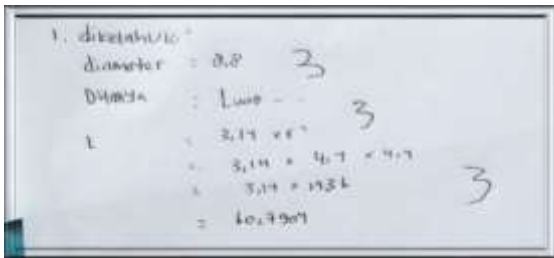 1. diketahui :
diameter : 8.8 3
Ditanya : Luas ...
L : 3,14 x r² 3
= 3,14 x 4.4 x 4.4
= 3,14 x 1936 3
= 60,7904